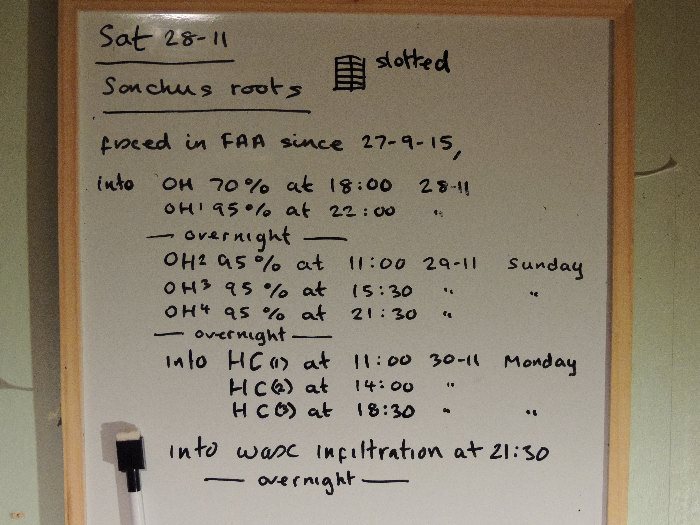 Sat 28-11
slotted
Sonchus roots
fixed in FAA since 27-9-15,
into OH 70% at 18:00 28-11
OH1 95% at 22:00 "
— overnight —
OH2 95% at 11:00 29-11 Sunday
OH3 95% at 15:30 " "
OH4 95% at 21:30 "
— overnight —
into HC(1) at 11:00 30-11 Monday
HC(2) at 14:00 "
HC(3) at 18:30 " "
into wax infiltration at 21:30
— overnight —